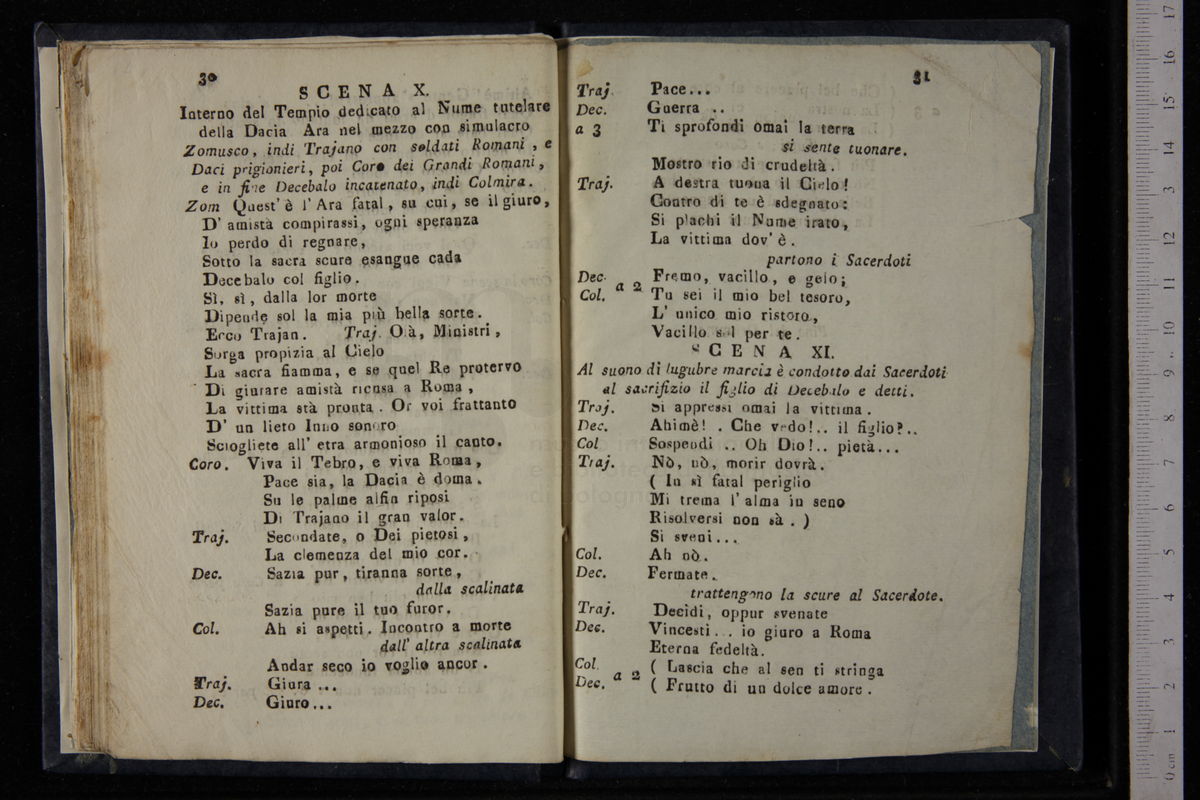 30
SCENA X.
Interno del Tempio dedicato al Nume tutelare
della Dacia Ara nel mezzo con simulacro
Zomusco, indi Trajano con soldati Romani, e
Daci prigionieri, poi Coro dei Grandi Romani,
e in fine Decebalo incatenato, indi Colmira.
Zom Quest' è l'Ara fatal, su cui, se il giuro,
D' amistà compirassi, ogni speranza
Io perdo di regnare,
Sotto la sacra scure esangue cada
Decebalo col figlio.
Sì, sì, dalla lor morte
Dipende sol la mia più bella sorte.
Ecco Trajan. Traj. Olà, Ministri,
Sorga propizia al Cielo
La sacra fiamma, e se quel Re protervo
Di giurare amistà ricusa a Roma,
La vittima stà pronta. Or voi frattanto
D' un lieto Inno sonoro
Sciogliete all' etra armonioso il canto.
Coro. Viva il Tebro, e viva Roma,
Pace sia, la Dacia è doma.
Su le palme alfin riposi
Di Trajano il gran valor.
Traj. Secondate, o Dei pietosi,
La clemenza del mio cor.
Dec. Sazia pur, tiranna sorte,
dalla scalinata
Sazia pure il tuo furor.
Col. Ah si aspetti. Incontro a morte
dall' altra scalinata
Andar seco io voglio ancor.
Traj. Giura ...
Dec. Giuro...
31
Traj. Pace...
Dec. Guerra ..
a 3 Ti sprofondi omai la terra
si sente tuonare.
Mostro rio di crudeltà.
Traj. A destra tuona il Cielo!
Contro di te è sdegnato:
Si plachi il Nume irato,
La vittima dov' è.
partono i Sacerdoti
Dec. a 2 Fremo, vacillo, e gelo;
Col. Tu sei il mio bel tesoro,
L' unico mio ristoro,
Vacillo sol per te.
SCENA XI.
Al suono di lugubre marcia è condotto dai Sacerdoti
al sacrifizio il figlio di Decebalo e detti.
Traj. Si appressi omai la vittima.
Dec. Ahimè! . Che vedo!.. il figlio?..
Col Sospendi .. Oh Dio!.. pietà...
Traj. Nò, nò, morir dovrà.
( In sì fatal periglio
Mi trema l' alma in seno
Risolversi non sà. )
Si sveni...
Col. Ah nò.
Dec. Fermate.
trattengono la scure al Sacerdote.
Traj. Decidi, oppur svenate
Dec. Vincesti... io giuro a Roma
Eterna fedeltà.
Col. a 2 ( Lascia che al sen ti stringa
Dec. ( Frutto di un dolce amore.